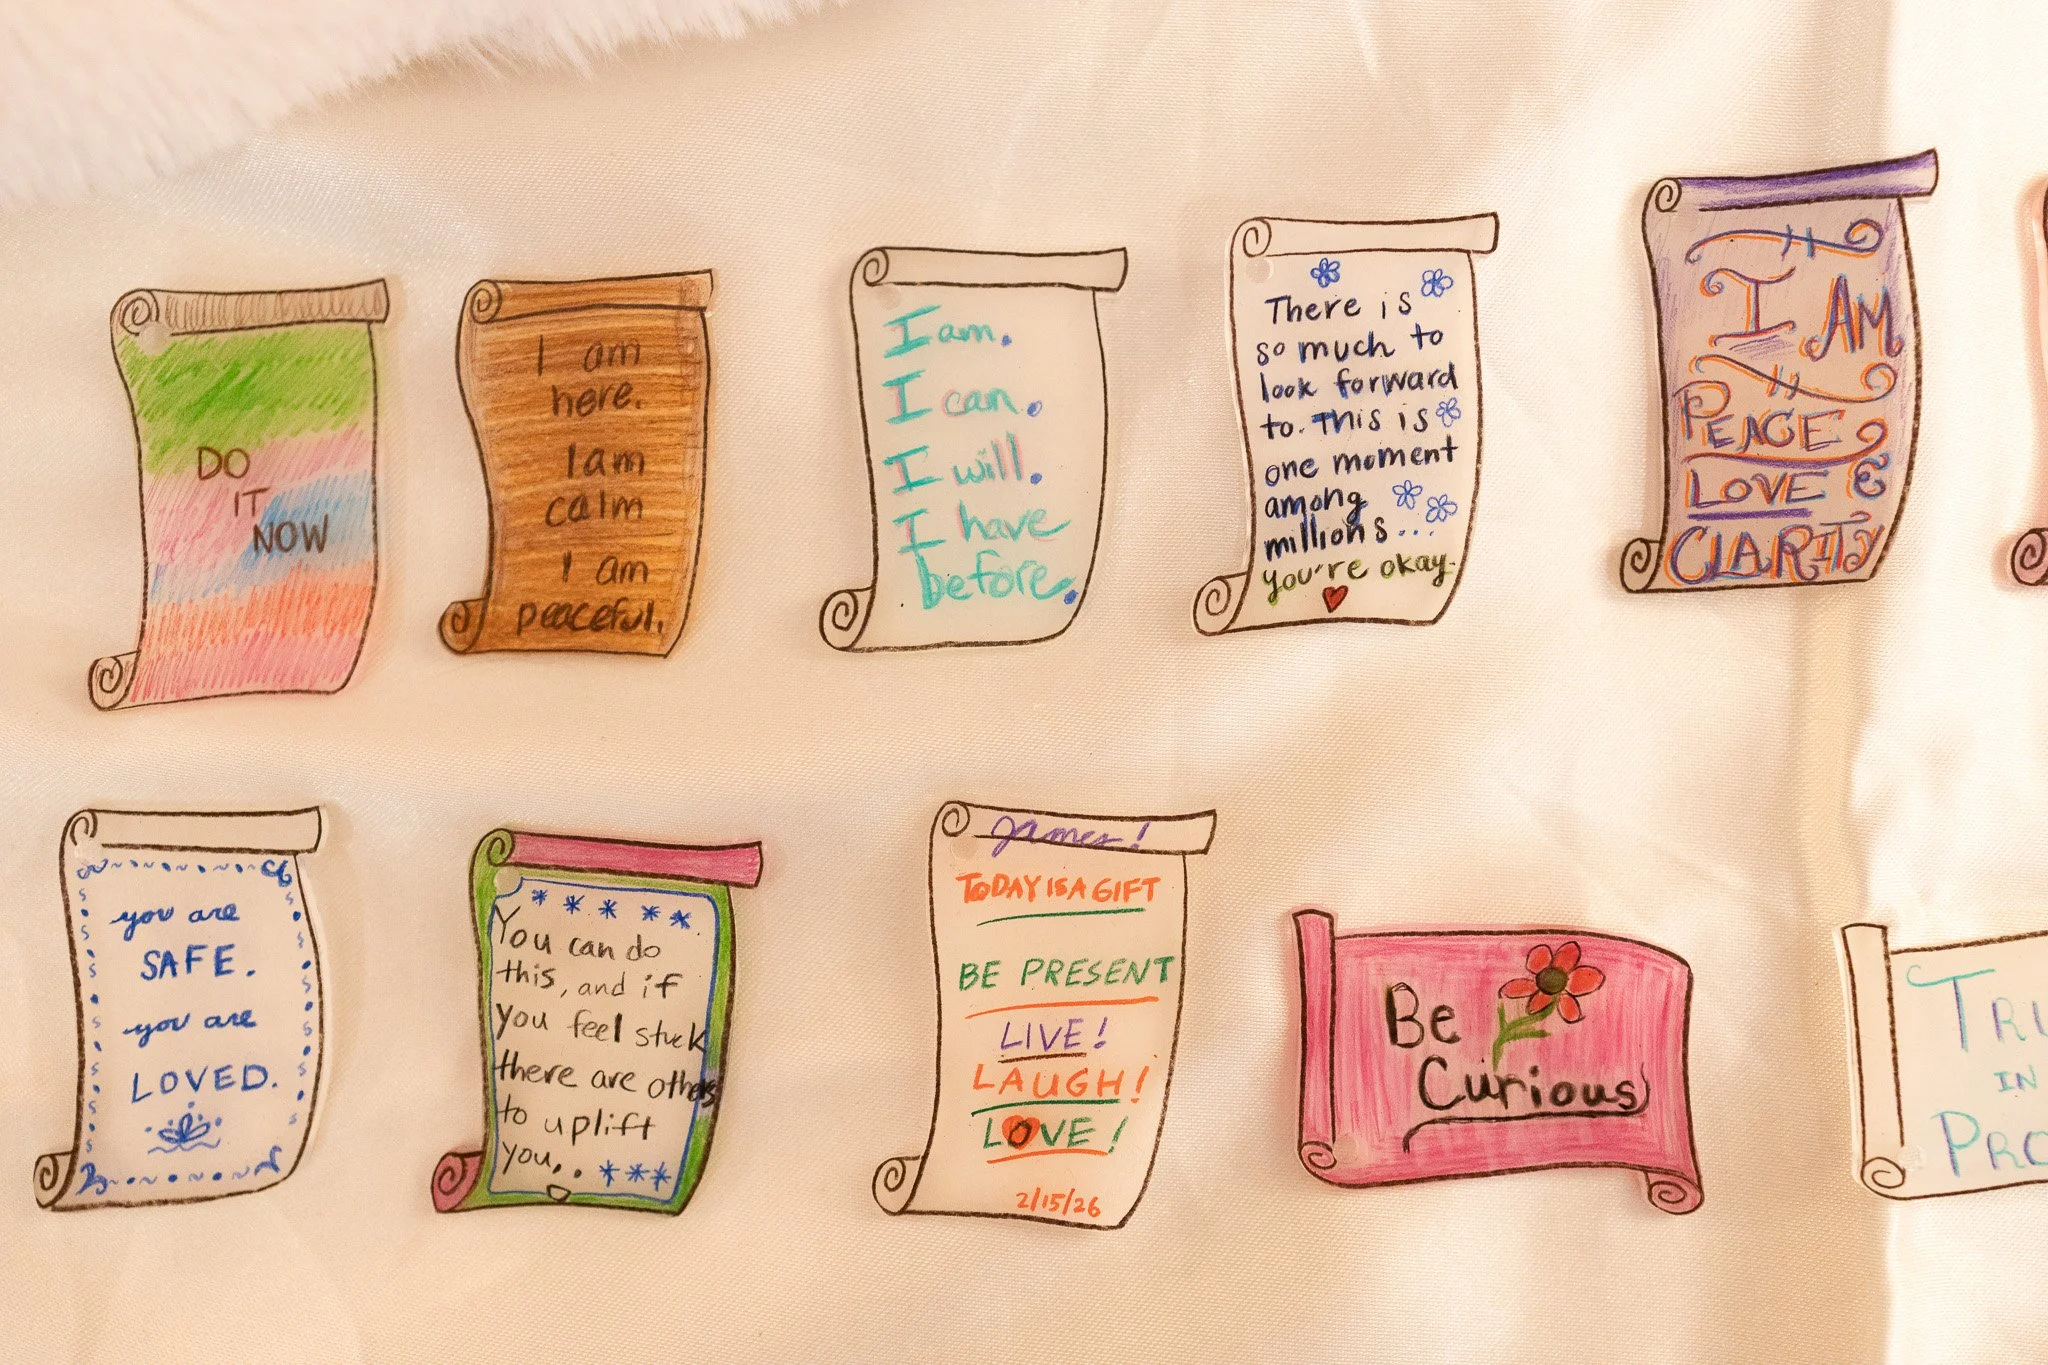 DO
IT
NOW
I am
here.
I am
calm
I am
peaceful.
I am.
I can.
I will.
I have
before.
There is
so much to
look forward
to. This is
one moment
among
millions...
you're okay.
I AM
PEACE
LOVE &
CLARITY
you are
SAFE.
you are
LOVED.
You can do
this, and if
you feel stuck
there are others
to uplift
you..
James!
TODAY IS A GIFT
BE PRESENT
LIVE!
LAUGH!
LOVE!
2/15/26
Be
Curious
IN